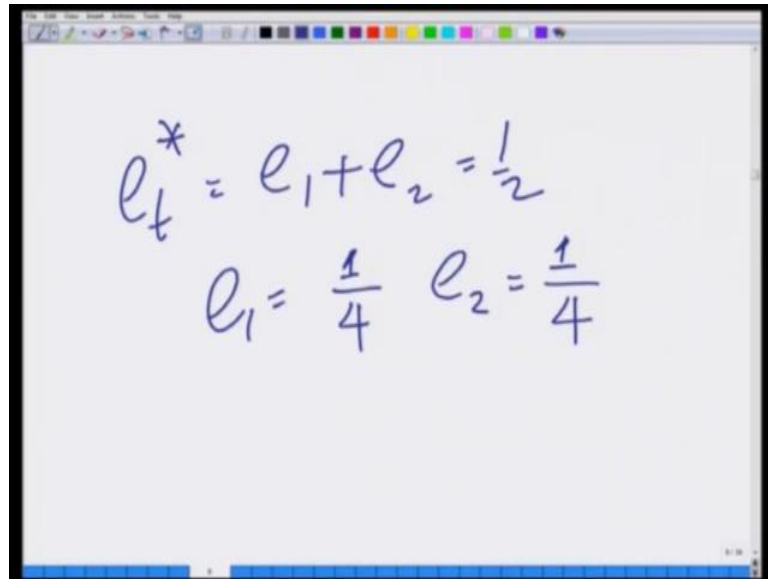 File Edit View Insert Actions Tools Help
e_t^* = e_1 + e_2 = 1/2
e_1 = 1/4 e_2 = 1/4